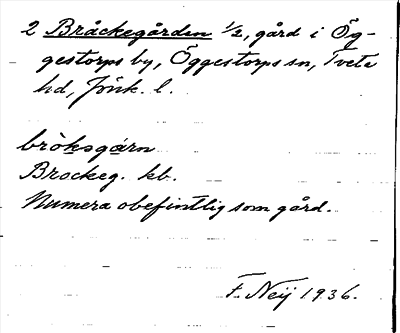 2 Bråckegården 1/2, gård i Ög-
gestorps by, Öggestorps sn, Tveta
hd, Jönk. l.
bròksgárn
Brockeg. kb.
Numera obefintlig som gård.
F. Neij 1936.